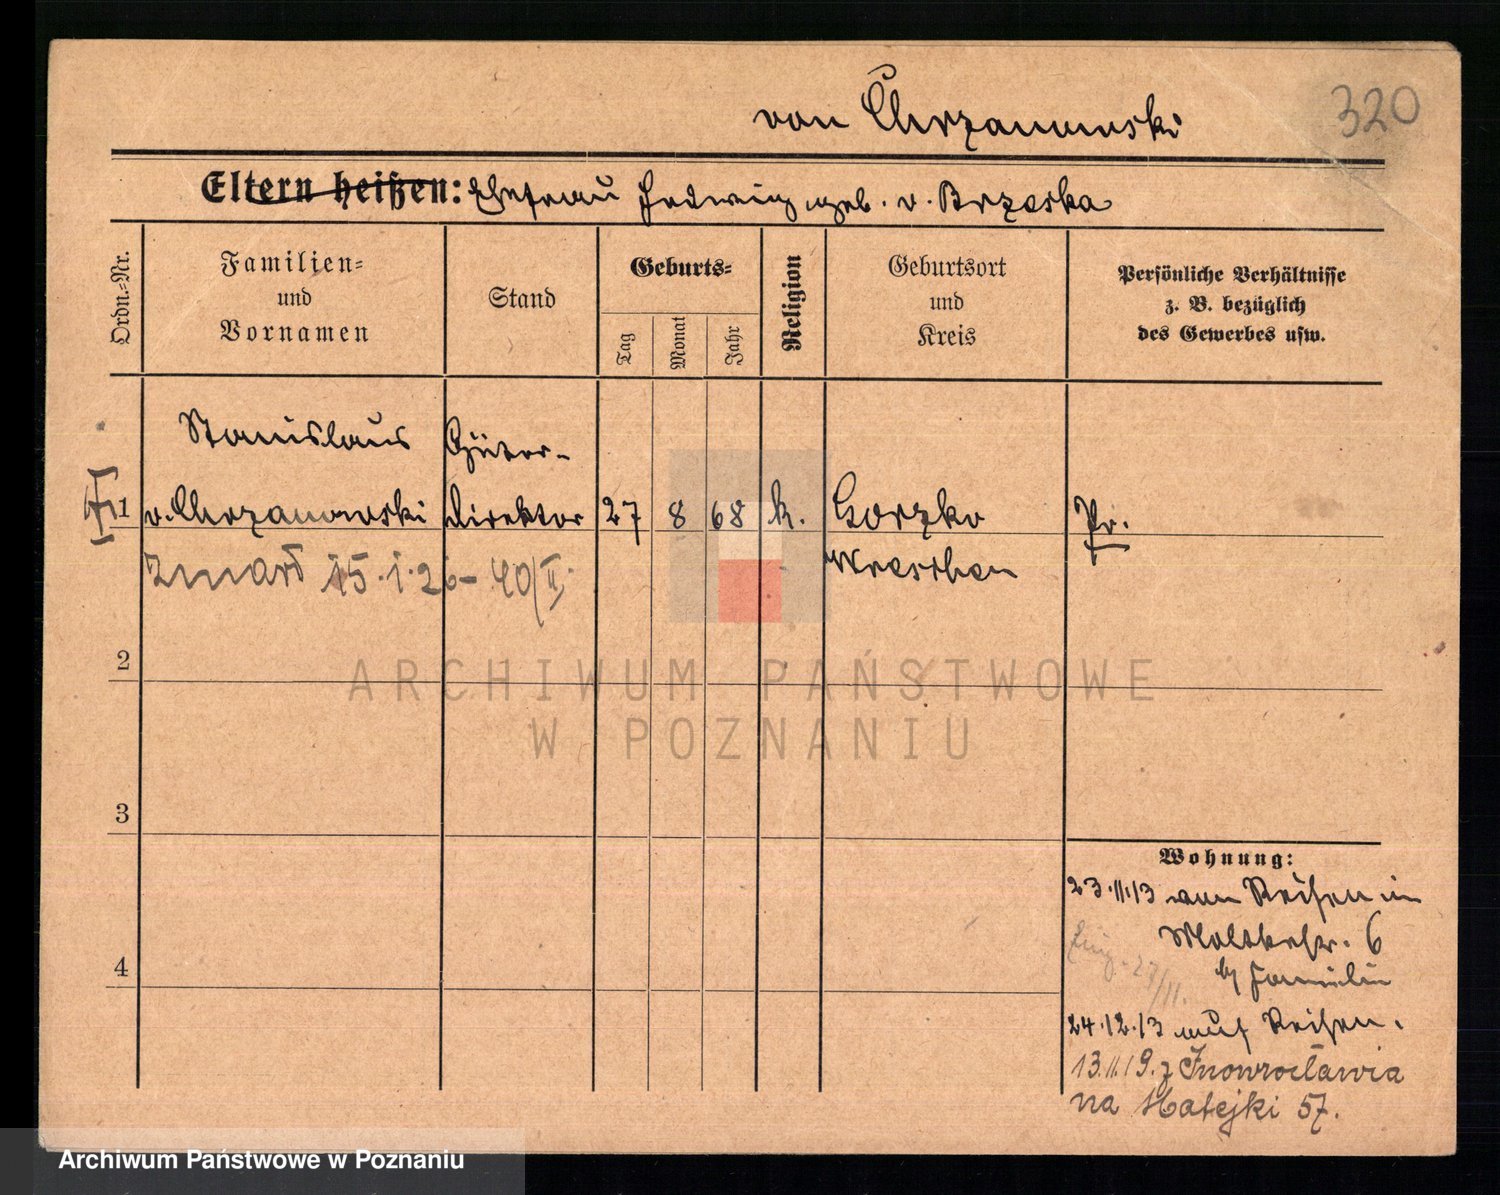 320
von Chrzanowski
Eltern heißen: Ehefrau Hedwig geb. v. Brzeska
Ordn.-Nr.
Familien-
und
Vornamen
Stand
Geburts-
Tag
Monat
Jahr
Religion
Geburtsort
und
Kreis
Persönliche Verhältnisse
z. B. bezüglich
des Gewerbes usw.
Stanislaus Güter-
1 v. Chrzanowski direktor 27 8 68 k. Gorzko Pr.
Wreschen
zmarł 15.1.26 - 40/II.
2
3
4
Wohnung:
23.11.13 von Reisen in
Moltkestr. 6
bei Familie
27/11.
24.12.13 auf Reisen.
13.11.19. z Inowrocławia
na Matejki 57.
ARCHIWUM PAŃSTWOWE
W POZNANIU
Archiwum Państwowe w Poznaniu